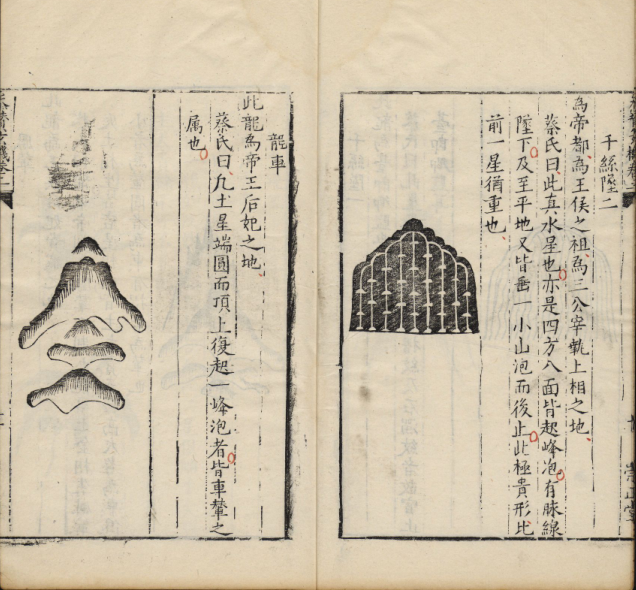 千絲墜二
為帝都為王侯之祖為三公宰執上相之地
蔡氏曰此真水星也亦是四方八面皆起峰泡有脉線
墜下及至平地又皆垂一小山泡而後止此極貴形比
前一星猶重也
龍車
此龍為帝王后妃之地
蔡氏曰凡土星端圓而頂上復起一峰泡者皆車輦之
属也